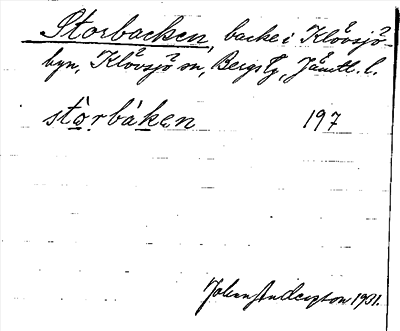 Storbacken, backe i Klövsjö-
byn, Klövsjö sn, Bergs tg, Jämtl. l.
stòrbáken 197
Johan Anderzson 1931.